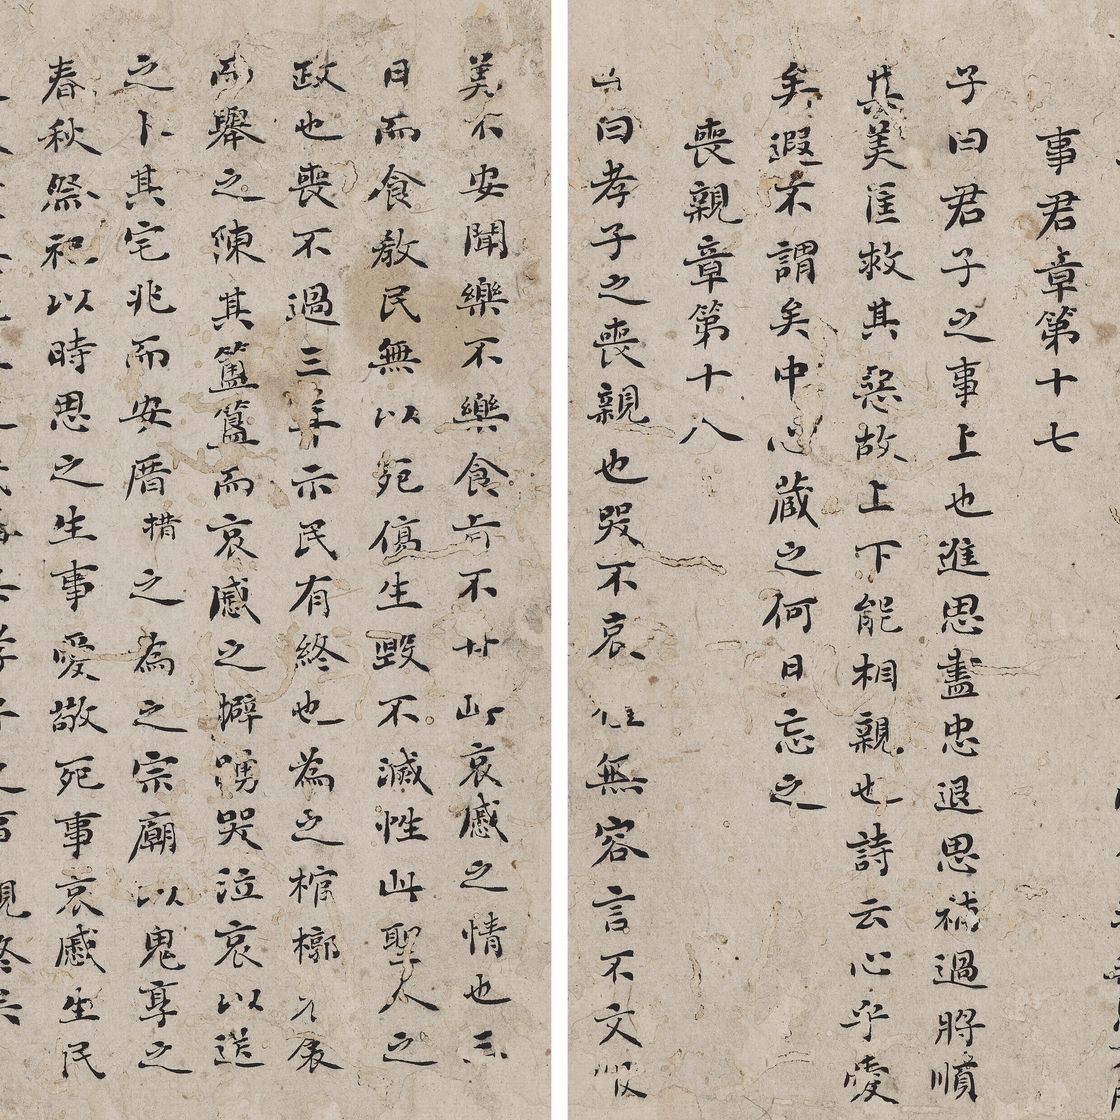 事君章第十七
子曰君子之事上也進思盡忠退思補過將順
其美匡救其惡故上下能相親也詩云心乎愛
矣遐不謂矣中心藏之何日忘之
喪親章第十八
曰孝子之喪親也哭不哀無容言不文服
美不安聞樂不樂食旨不甘此哀慼之情也三
日而食教民無以死傷生毀不滅性此聖人之
政也喪不過三年示民有終也為之棺槨衣衾
而舉之陳其簠簋而哀慼之擗踊哭泣哀以送
之卜其宅兆而安厝措之為之宗廟以鬼享之
春秋祭祀以時思之生事愛敬死事哀慼生民